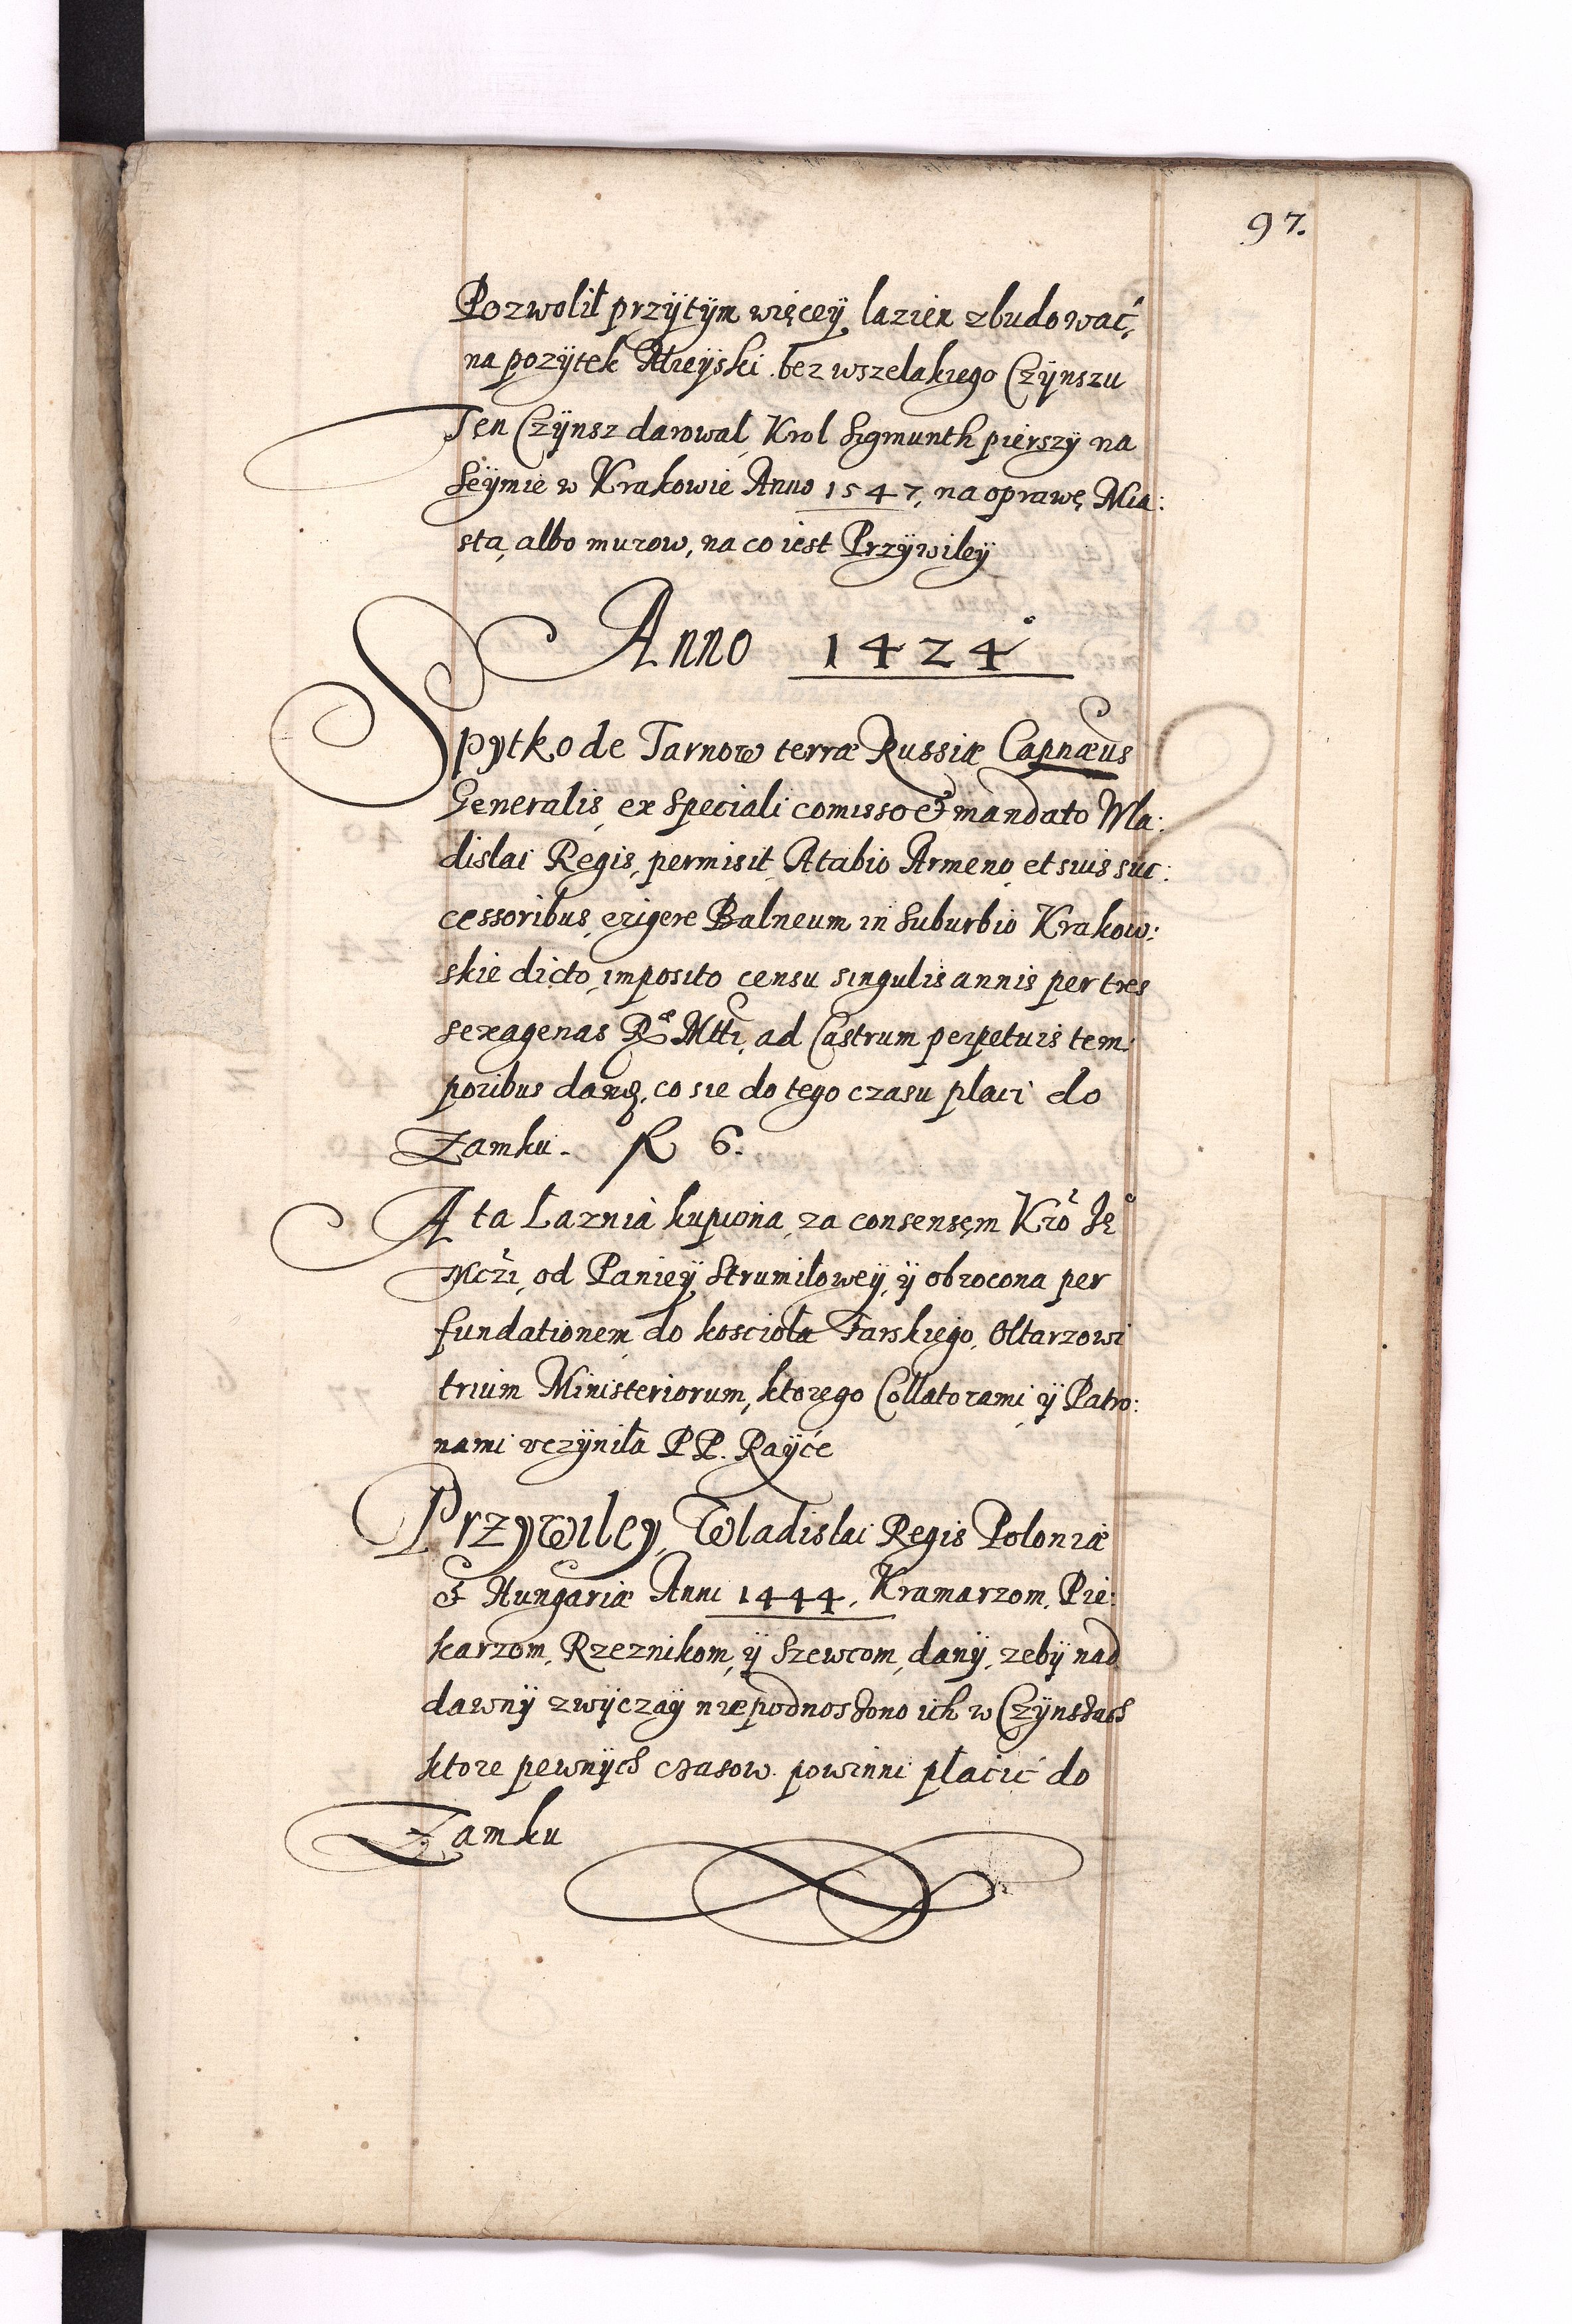 97.
Pozwolił przÿtÿm więceÿ lazien zbudować,
na pozÿtek Mieÿski bez wszelakiego Czÿnszu
Ten Czÿnsz darował, Krol Sigmunth pierszÿ na
Seÿmie w Krakowie Anno 1547, na oprawę Mia:
sta, albo murow, na co iest Przÿwileÿ
Anno 1424
Spytko de Tarnow terræ Russiæ Capnæus
Generalis, ex Speciali comisso & mandato Wla:
dislai Regis, permisit, Atabio Armeno, et suis suc:
cessoribus, erigere Balneum in Suburbio Krakow:
skie dicto, imposito censu singulis annis per tres
sexagenas Ræ Mtti, ad Castrum perpetuis tem:
poribus dang, co sie do tego czasu płaci do
Zamku. R 6.
A ta Łaznia kupiona, za consensem Kro Je
Mczi, od Panieÿ Strumiłoweÿ, ÿ obrocona per
fundationem do koscioła Farskiego, Ołtarzowi
trium Ministeriorum, ktorego Collatorami ÿ Patro:
nami vczÿniła PP. Raÿce
Przywiley, Wladislai Regis Poloniæ
& Hungariæ Anni 1444, Kramarzom, Pie:
karzom, Rzeznikom, ÿ Szewcom, danÿ, zebÿ nad
dawnÿ zwÿczaÿ niepodnoszono ich w Czÿnszach
ktore pewnÿch czasow powinni płacić do
Zamku